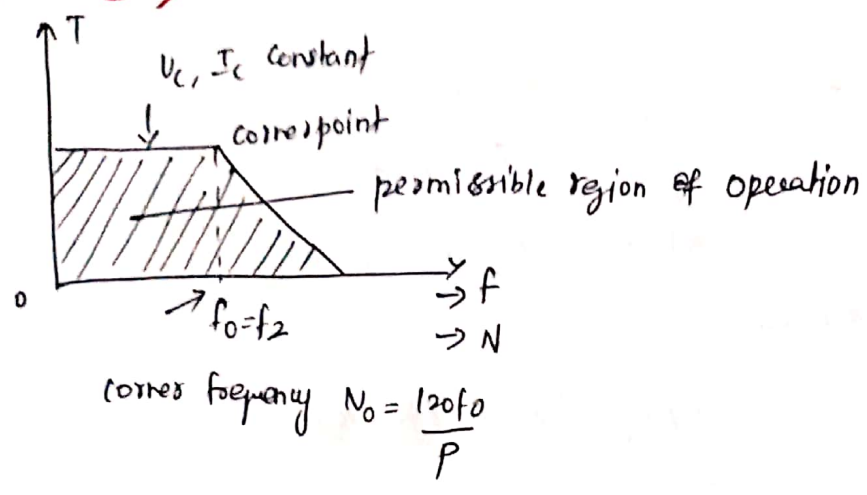 T
Vc, Ic constant
corner point
permissible region of operation
0
f0=f2
→ f
→ N
corner frequency N0 = 120f0
P